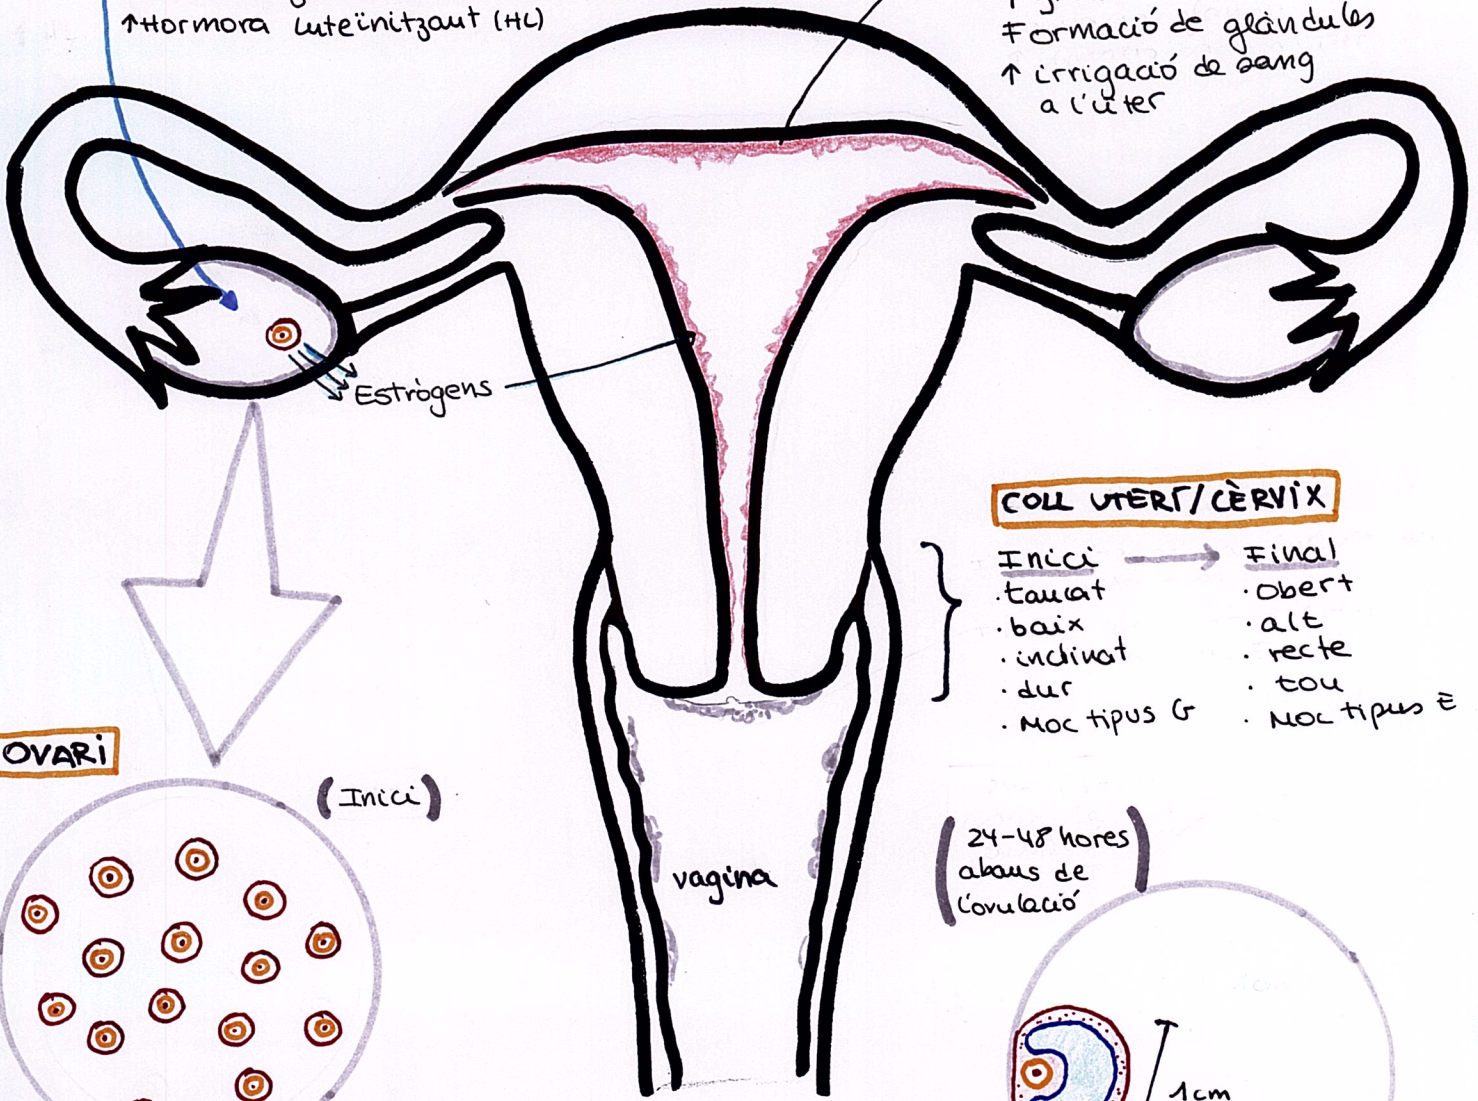 ↑Hormora luteïnitzant (HL)
Formació de glàndules
↑ irrigació de sang
a l'úter
Estrògens
COLL UTERÍ/CÈRVIX
Inici → Final
· tancat
· baix
· inclinat
· dur
· Moc tipus G
· Obert
· alt
· recte
· tou
· Moc tipus E
OVARI
(Inici)
vagina
(24-48 hores
abans de
l'ovulació)
1cm